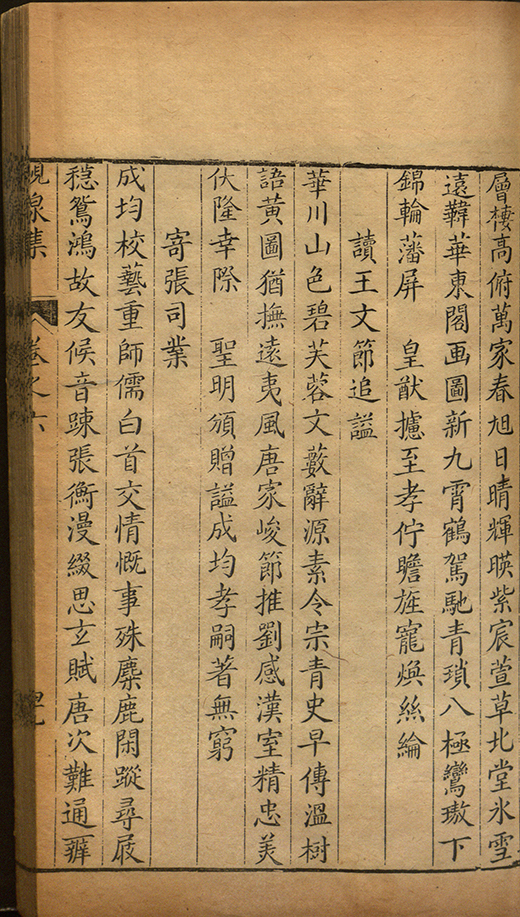 層棲高俯萬家春旭日晴輝暎紫宸萱草北堂氷雪
遠韡華東閣画圖新九霄鶴駕馳青瑣八極鸞璈下
錦輪藩屏　皇猷攄至孝佇瞻旌寵煥絲綸
讀王文節追謚
華川山色碧芙蓉文藪辭源素令宗青史早傳溫樹
語黃圖猶撫遠夷風唐家峻節推劉感漢室精忠美
伏隆幸際　聖明頒贈謚成均孝嗣著無窮
寄張司業
成均校藝重師儒白首交情慨事殊麋鹿閑蹤尋屐
穩鴛鴻故友候音踈張衡漫綴思玄賦唐次難通辨
集
卷之六